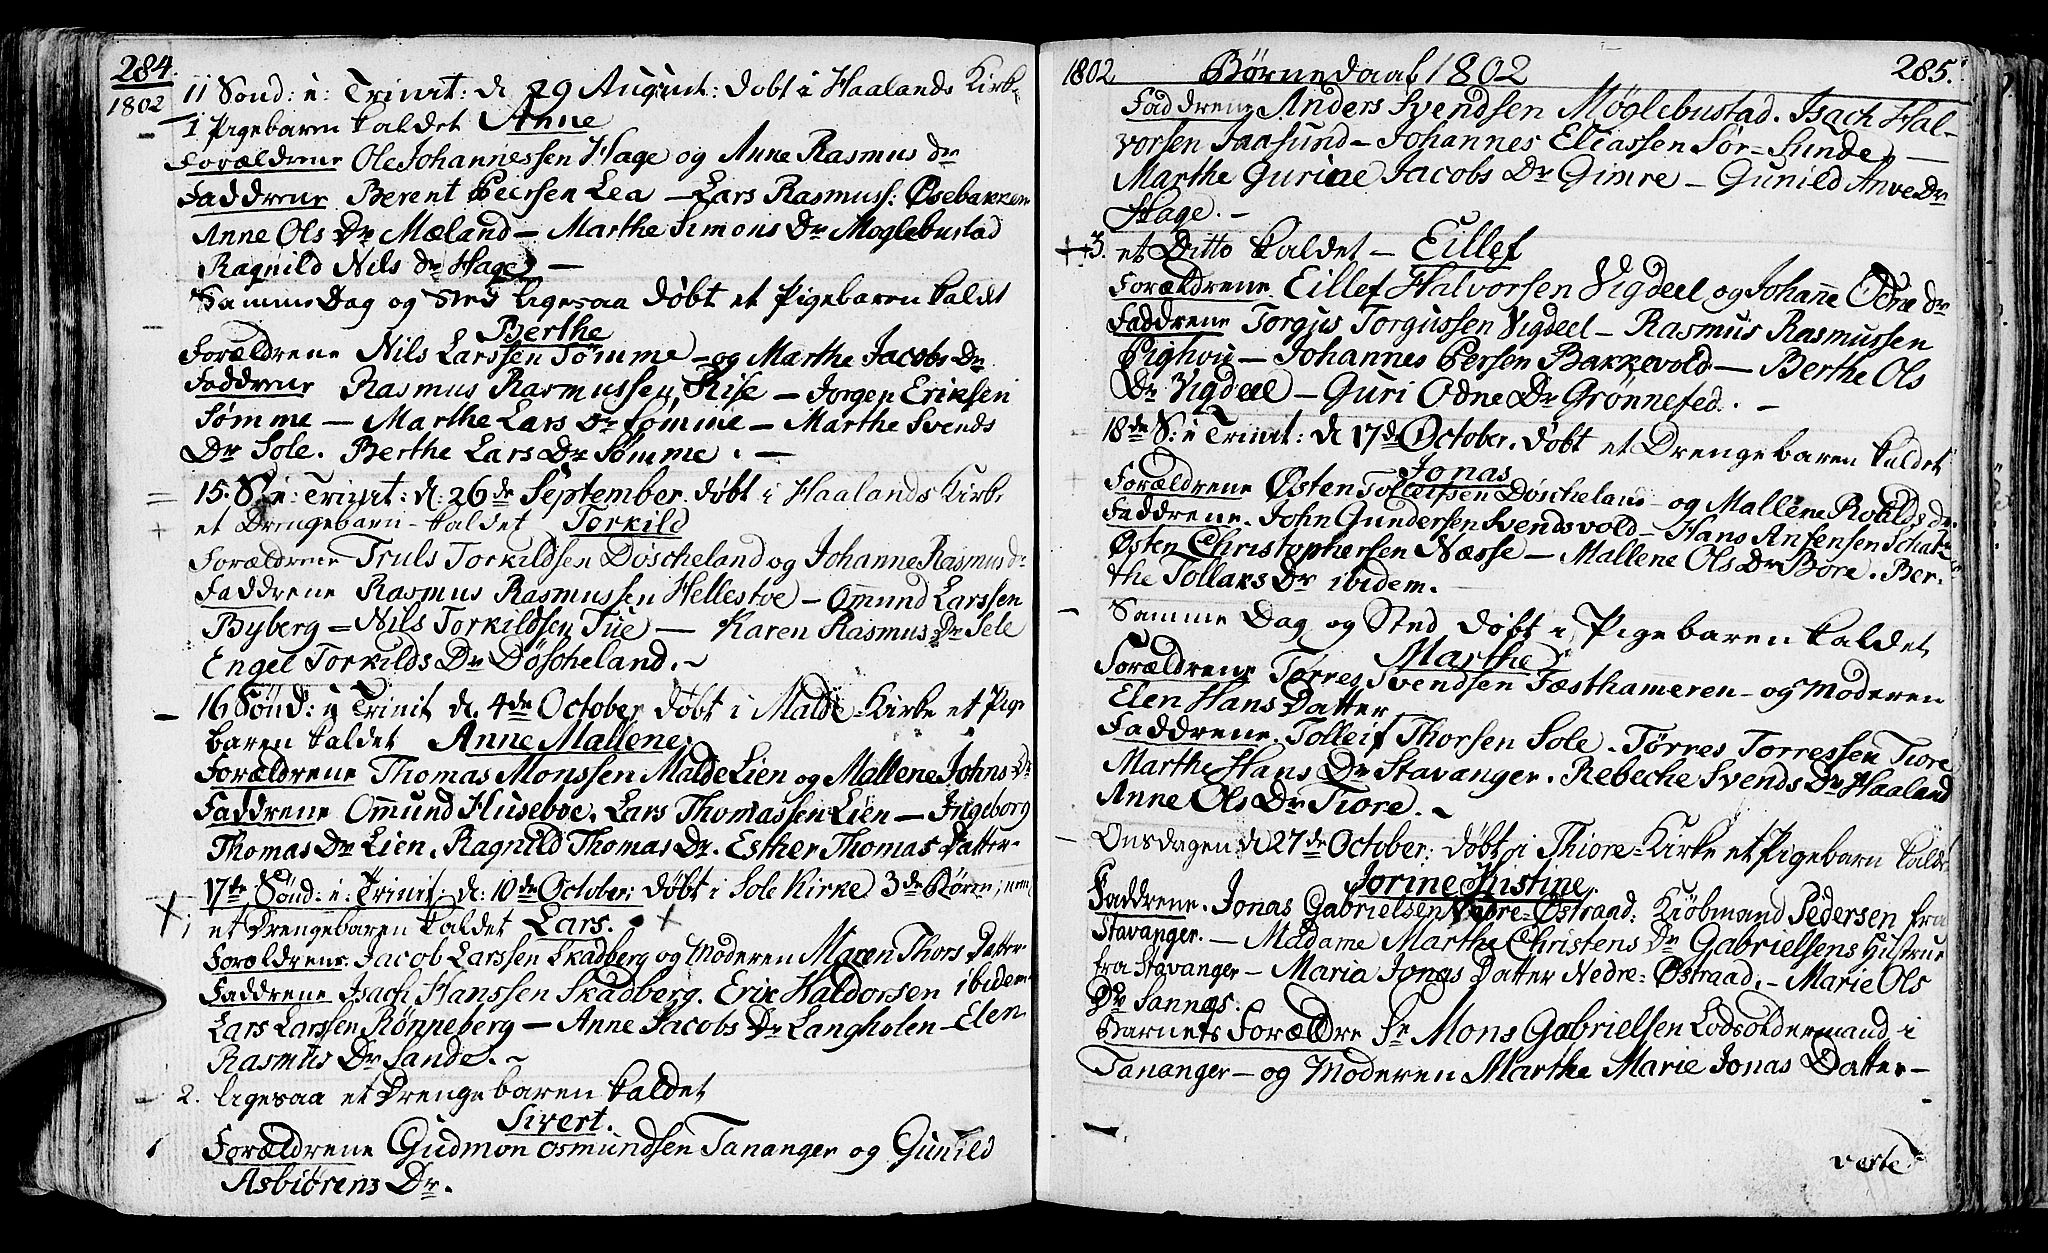 284.
1802
11 Sønd: e: Trinit: d 29 August: døbt i Haalands Kirk
1 Pigebaren kaldet Anne
Forældrene Ole Johannessen Hage og Anne Rasmus dr
Faddrene Berent Peersen Lea – Lars Rasmuss: Øsebakken
Anne Ols Dr Mæland – Marthe Simons Dr Møglebustad
Ragnild Nils dr Hage –
Samme Dag og Sted ligesaa døbt et Pigebaren kaldt
Berthe
Forældrene Nils Larssen Sømme – og Marthe Jacobs Dr
Faddrene Rasmus Rasmussen Riise – Jorgen Eriksen
Sømme – Marthe Lars Dr Sømme – Marthe Svends
Dr Sole. Berthe Lars Dr Sømme. –
15. S: e: Trinit: d: 26de September døbt i Haalands Kirk
et Drengebarn – kaldet Torkild
Forældrene Truls Torkildsen Døscheland og Johanne Rasmus dr
Faddrene Rasmus Rasmussen Hellestoe – Omund Larssen
Byberg – Nils Torkildsen Tue – Karen Rasmus Dr Sele
Engel Torkilds Dr Døscheland. ~
16 Sønd: e Trinit d. 4de October døbt i Malde – Kirke et Pige
baren kaldet Anne Mallene.
Forældrene Thomas Monssen Malde Lien og Mallene Johns Dr
Faddrene Omund Huseboe. Lars Thomassen Lien – Ingeborg
Thomas Dr Lien. Ragnild Thomas Dr. Esther Thomas Datter.
17de Sønd: e: Trinit: d: 10de October: døbt i Sole Kirke 3de Børn; nem
et Drengebaren kaldet Lars.
Forældrene. Jacob Larssen Skadberg og Moderen Maren Thors Datter
Faddrene Isach Hanssen Skadberg. Erik Haldorsen ibidem
Lars Larssen Rønneberg – Anne Jacobs Dr Langholen – Elen
Rasmus Dr Sande. ~
2. ligesaa et Drengebaren kaldet
Sivert.
Forældrene Gudmon Osmundsen Tananger og Gunild
Asbiørens Dr.
1802 Børnedaab 1802 285.
Faddrene Anders Svendsen Møglebustad. Isach Hal-
vorsen Jaasund – Johannes Eliassen Sør-Sunde –
Marthe Gurine Jacobs Dr Gimre – Gunild Anve Dr
Hage. –
3. et Ditto kaldet – Eillef
Forældrene Eillef Halvorsen Vigdeel og Johanne Odne dr
Faddrene Torgius Torgussen Vigdeel – Rasmus Rasmussen
Pighvii – Johannes Persen Bakkevold – Berthe Ols
Dr Vigdeel – Guri Odne Dr Grønnefed. –
18de S: e Trinit: d 17de October. døbt et Drengebaren kaldet
Jonas
Forældrene Østen Tolleifsen Døscheland – og Mallene Roalds dr.
Faddrene. John Gundersen Svendsvold – Hans Ansensen
Østen Christophersen Næsse – Mallene Ols Dr Bore. Ber-
the Tollaks Dr ibidem.
Samme Dag og Sted døbt i Pigebaren kaldet
Marthe
Forældrene Tørres Svendsen Fæsthameren – og Moderen
Elen Hans Datter
Faddrene. Tolleif Thorsen Sole. Tørres Torressen Tiore
Marthe Hans Dr Stavanger. Rebeche Svends Dr Haaland
Anne Ols Dr Tiore. ~
Onsdagen d 27de October: døbt i Thiore-Kirke et Pigebarn kaldt
Jorine Justine.
Faddrene. Jonas Gabrielsen Nedre-Østraad: Kiøbmand Pedersen fra
Stavanger. – Madame Marthe Christens Dr Gabrielsens Hustrue
fra Stavanger – Maria Jonas Datter Nedre-Østraad. – Marie Ols
Dr Sannes.
Barnets Forældre Sr Mons Gabrielsen Lodsoldermand i
Tananger – og Moderen Marthe Marie Jonas Datter –